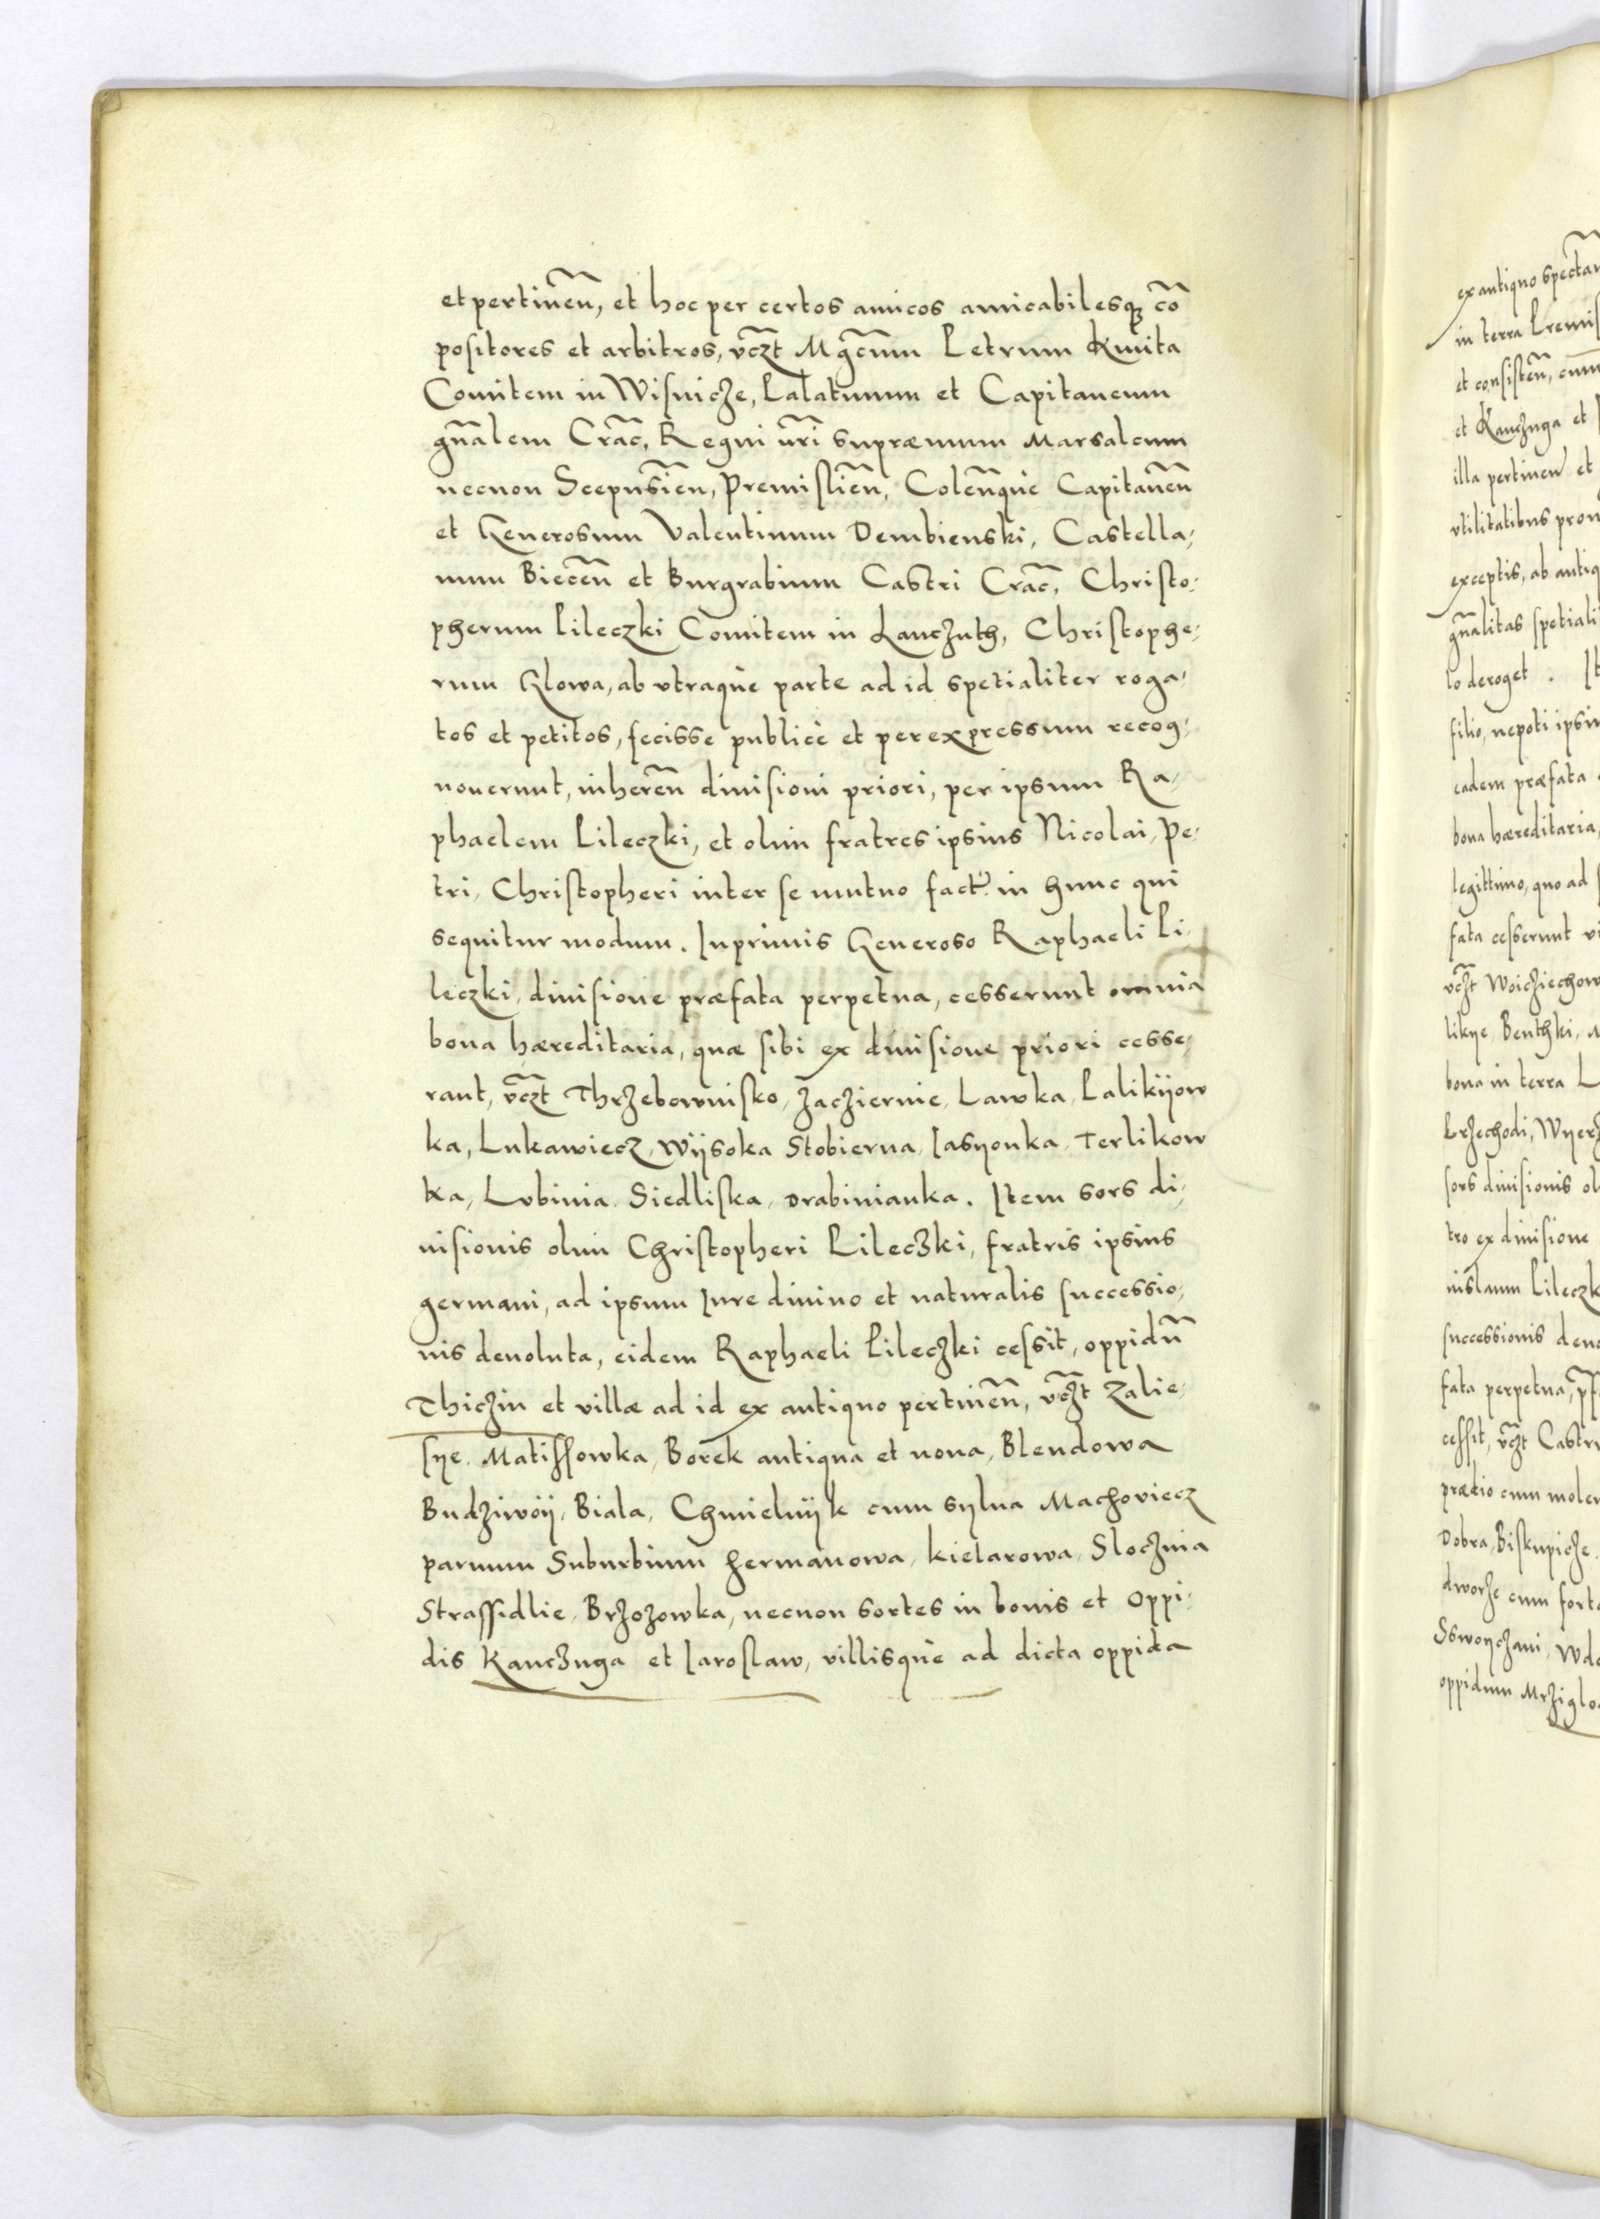 et pertineñ, et hoc per certos amicos amicabilesq; cõ
positores et arbitros, vcz̃t Mgc̃um Petrum Kmita
Comitem in Wisnicze, Palatinum et Capitaneum
gñalem Crac̃, Regni ñri supræmum Marsalcum
necnon Scepusieñ, Premislieñ, Coleñquè Capitaneũ
et Generosum Valentinum Dembienski, Castella,
num Bieceñ et Burgrabium Castri Crac̃, Christo,
pherum Pileczki Comitem in Lanczuth, Christophe,
rum Glowa, ab vtraquè parte ad id spetialiter roga,
tos et petitos, fecisse publicè et per expressum recog,
nouerunt, inhereñ diuisioni priori, per ipsum Ra,
phaelem Pileczki, et olim fratres ipsius Nicolai, Pe,
tri, Christopheri inter se mutuo fact. in hunc qui
sequitur modum. Inprimis Generoso Raphaeli Pi,
leczki, diuisione præfata perpetua, cesserunt omnia
bona hæreditaria, quæ sibi ex diuisione priori cesse,
rant, vcz̃t Thrzebownisko, Zacziernie, Lawka, Palikÿow
ka, Lukawiecz, Wÿsoka Stobierna, Iasyonka, Terlikow
ka, Lubinia Siedliska, Drabinianka. Item sors di,
uisionis olim Christopheri Pileczki, fratris ipsius
germani, ad ipsum Iure diuino et naturalis successio,
nis deuoluta, eidem Raphaeli Pileczki cessit, oppidũ
Thiczin et villæ ad id ex antiquo pertineñ, vcz̃t Zalie,
sye. Matissowka, Borek antiqua et noua, Blendowa
Budziwöy, Biala, Chmielnÿk cum sylua Machowiecz
paruum Suburbium Hermanowa, Kielarowa, Sloczina
Strassidlie, Brzozowka, necnon sortes in bonis et Oppi,
dis Kanczuga et Iaroslaw, villisquè ad dicta oppida
ex antiquo
in terra
et consisteñ,
et Kanczuga et
illa pertineñ et
vtilitatibus
exceptis, ab
gñalitas
lo deroget. It
filio, nepoti
eadem præfata
bona hæreditaria,
legittimo, quo ad
fata cesserunt
vcz̃t
likye Benthki,
bona in terra
sors diuisionis
tro ex diuisione
nislaum
successionis
fata perpetua,
cessit, vcz̃t
prædio cum
Dobra, Biskupicze
dworze cum
oppidum